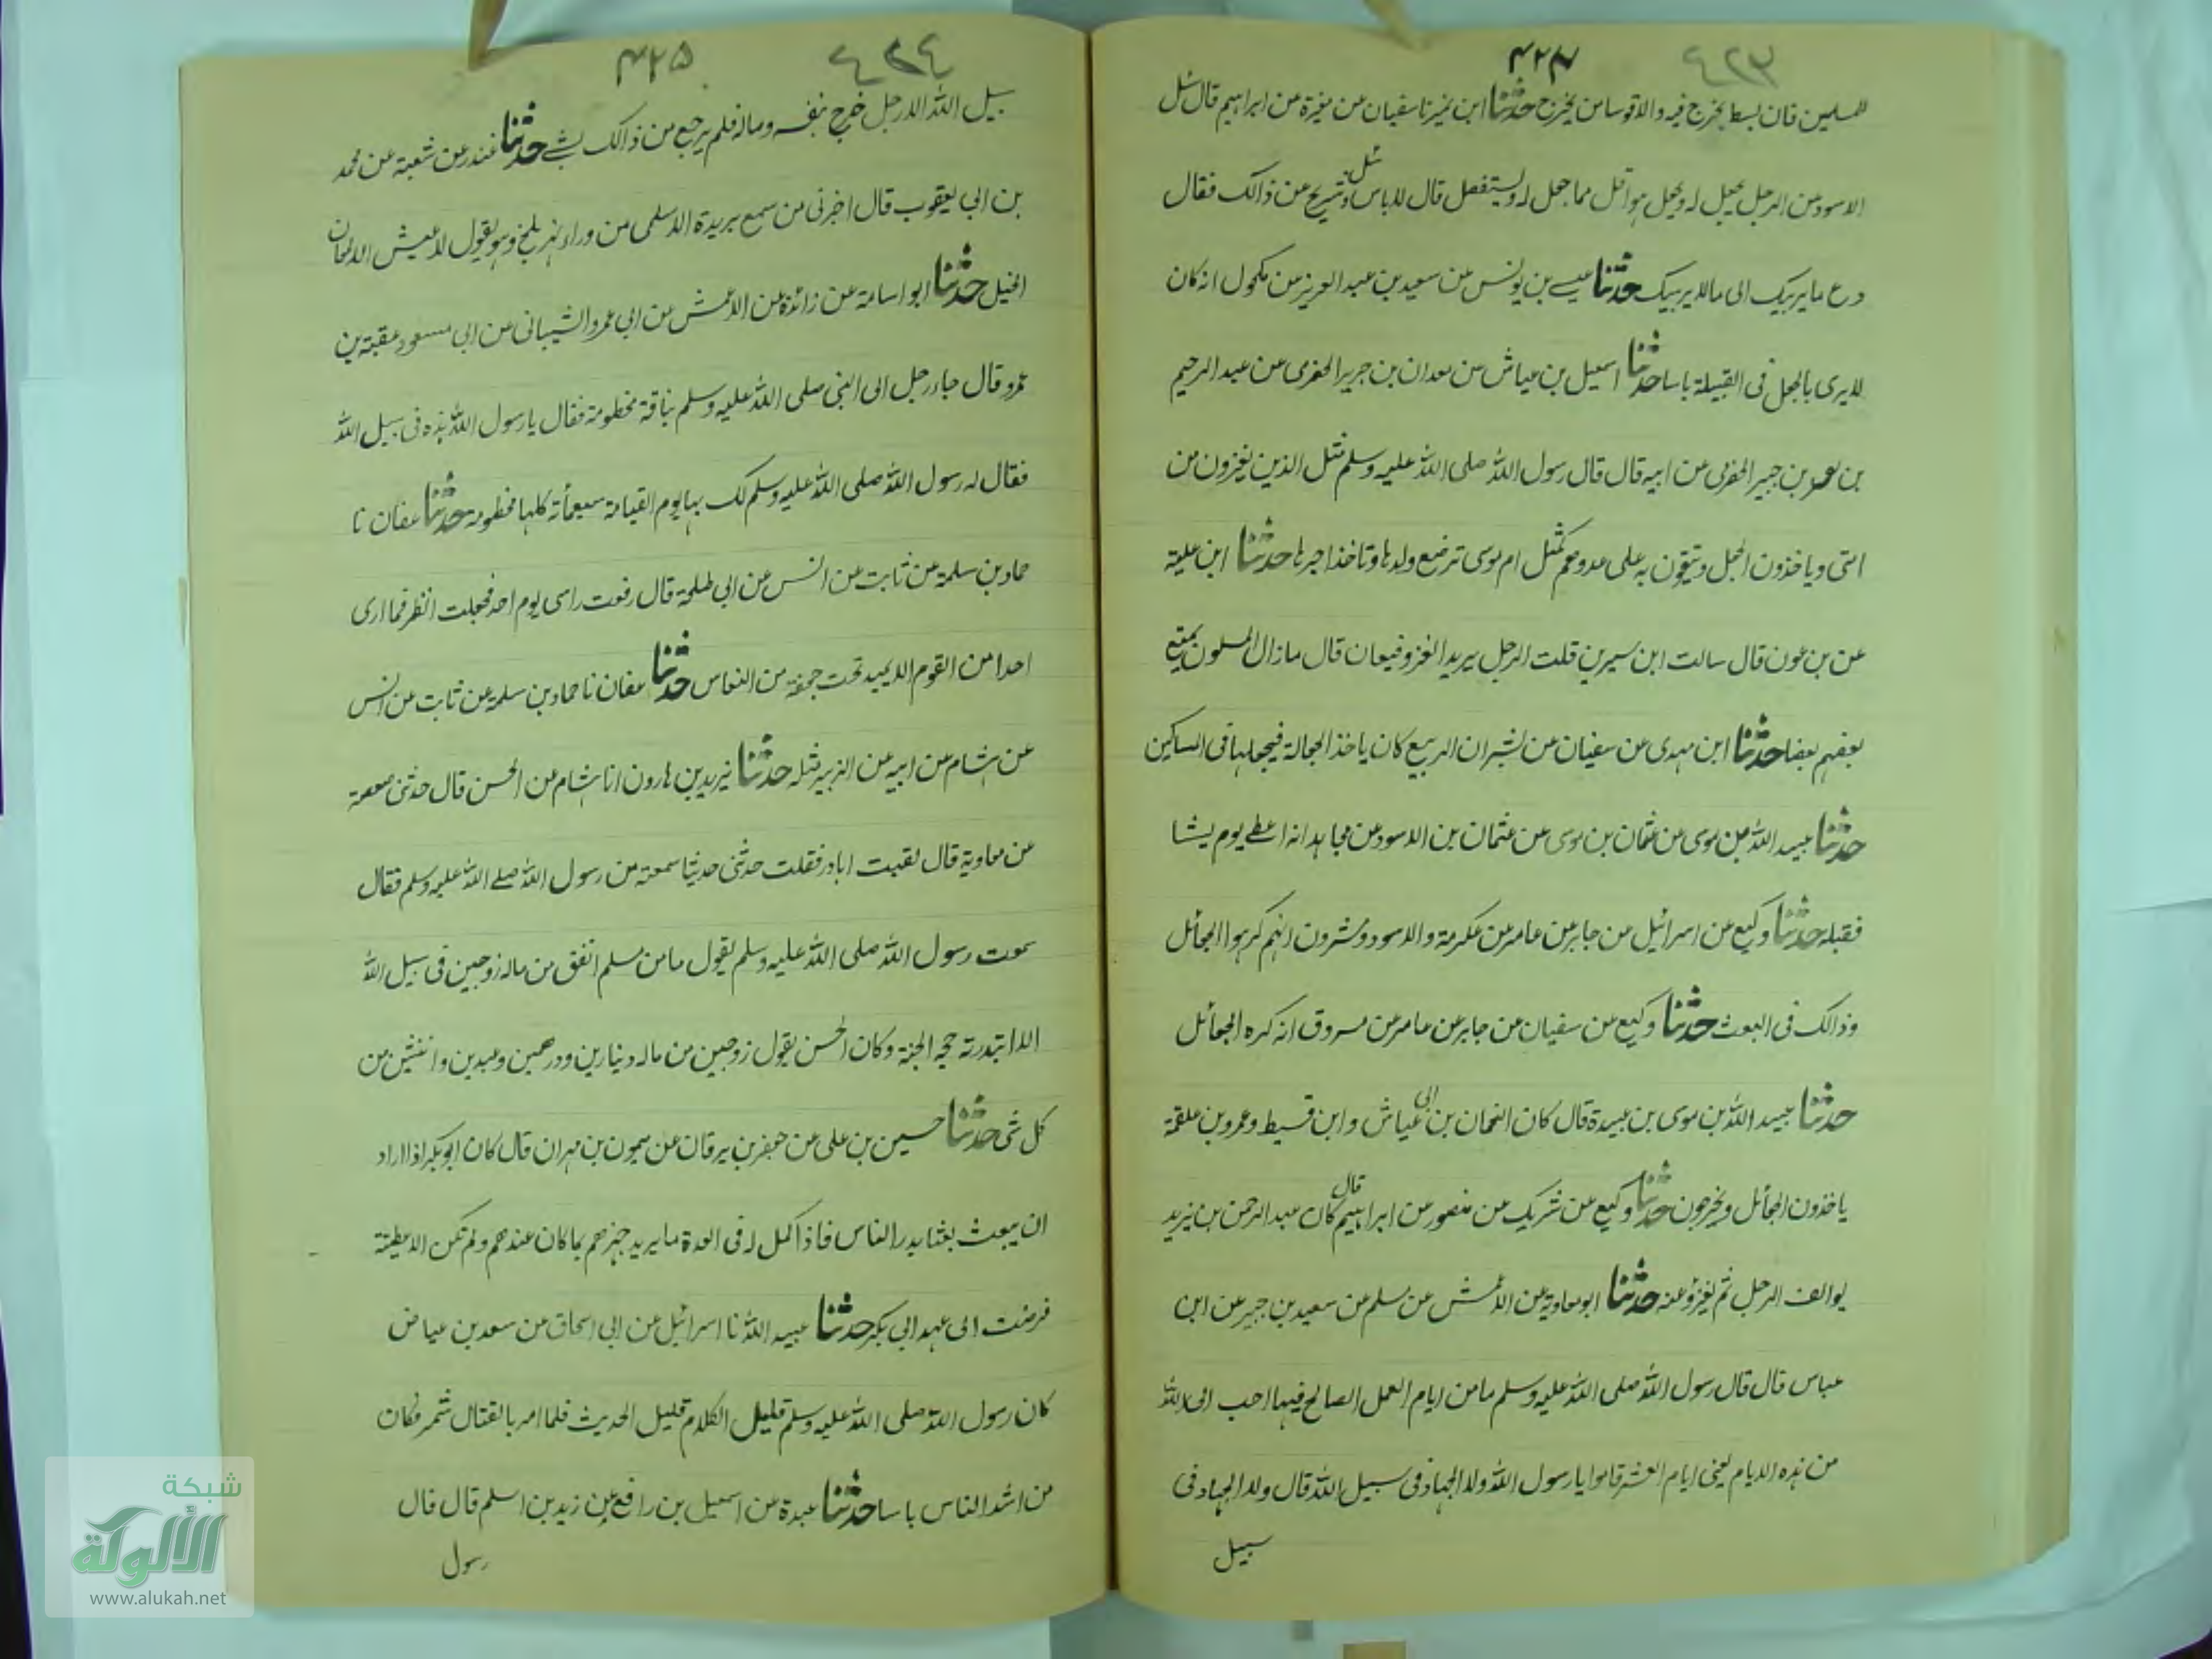 ٤٢٣ ۴۲۴
للمسلمين فان بسط يخرج فيه والا قوسا من يخرج حدثنا ابن نمير نا سفيان عن مغيرة عن ابراهيم قال سئل
الاسود عن الرجل يجعل له ويجعل هو اقل مما جعل له ويستفضل قال لا باس وسئل شريح عن ذالك فقال
دع ما يريبك الى ما لا يريبك حدثنا عيسے بن يونس عن سعيد بن عبد العزيز عن مكحول انه كان
لا يرى بالجعل فى القبيلة باسا حدثنا اسمعيل بن عياش عن معدان بن جرير الحضرمى عن عبد الرحيم
بن جبير عن ابيه قال قال رسول الله صلى الله عليه وسلم مثل الذين يغزون من
امتى وياخذون الجعل ويتقوون به على عدوهم كمثل ام موسى ترضع ولدها وتاخذ اجرها حدثنا ابن علية
عن بن عون قال سالت ابن سيرين قلت الرجل يريد الغزو فيعان قال ما زال المسلمون يمتع
بعضهم بعضا حدثنا ابن مهدى عن سفيان عن نسير ان الربيع كان ياخذ الجعالة فيجعلها فى المساكين
حدثنا عبيد الله بن موسى عن عثمان بن موسى عن عثمان بن الاسود عن مجاهد انه اعطے يوم يشا
فقبله حدثنا وكيع عن اسرائيل عن جابر عن عامر عن عكرمة والاسود ومسروق انهم كرهوا الجعائل
وذالك فى البعث حدثنا وكيع عن سفيان عن جابر عن عامر عن مسروق انه كره الجعائل
حدثنا عبيد الله بن موسى بن عبيدة قال كان النعمان بن ابى عياش وابن قسيط وعمرو بن علقمة
ياخذون الجعائل ويخرجون حدثنا وكيع عن شريك عن منصور عن ابراهيم قال كان عبد الرحمن بن يزيد
يوالف الرجل ثم يغزو عنه حدثنا ابو معاوية عن الاعمش عن مسلم عن سعيد بن جبير عن ابن
عباس قال قال رسول الله صلى الله عليه وسلم ما من ايام العمل الصالح فيها احب الى الله
من هذه الايام يعنى ايام العشر قالوا يا رسول الله ولا الجهاد فى سبيل الله قال ولا الجهاد فى
سبيل
٤٢٤ ۴۲۵
سبيل الله الا رجل خرج بنفسه وماله فلم يرجع من ذالك بشے حدثنا غندر عن شعبة عن محمد
بن ابى يعقوب قال اخبرنى من سمع بريدة الاسلمى من وراء نهر بلخ وهو يقول لا عيش الا طعان
الخيل حدثنا ابو اسامة عن زائدة عن الاعمش عن ابى عمرو الشيبانى عن ابى مسعود عقبة بن
عمرو قال جاء رجل الى النبى صلى الله عليه وسلم بناقة مخطومة فقال يا رسول الله هذه فى سبيل الله
فقال له رسول الله صلى الله عليه وسلم لك بها يوم القيامة سبعمأة كلها مخطومة حدثنا عفان نا
حماد بن سلمة عن ثابت عن انس عن ابى طلحة قال رفعت راسى يوم احد فجعلت انظر فما ارى
احدا من القوم الا يميد تحت حجفته من النعاس حدثنا عفان نا حماد بن سلمة عن ثابت عن انس
عن هشام عن ابيه عن الزبير مثله حدثنا يزيد بن هارون انا هشام عن الحسن قال حدثنى صعصعة
عن معاوية قال لقيت اباذر فقلت حدثنى حديثا سمعته من رسول الله صلے الله عليه وسلم فقال
سمعت رسول الله صلى الله عليه وسلم يقول ما من مسلم انفق من ماله زوجين فى سبيل الله
الا ابتدرته حجبة الجنة وكان الحسن يقول زوجين من ماله دينارين ودرهمين وعبدين واثنين من
كل شى حدثنا حسين بن على عن جعفر بن برقان عن ميمون بن مهران قال كان ابو بكر اذا اراد
ان يبعث بعثا يدر الناس فاذا كمل له فى العدة ما يريد جهزهم بما كان عندهم ولم تكن الاعطية
فرضت الى عهد ابى بكر حدثنا عبيد الله نا اسرائيل عن ابى اسحاق عن سعد بن عياض
كان رسول الله صلى الله عليه وسلم قليل الكلام قليل الحديث فلما امر بالقتال شمر فكان
من اشد الناس باسا حدثنا عبدة عن اسمعيل بن رافع عن زيد بن اسلم قال قال
رسول
شبكة
الألوكة
www.alukah.net